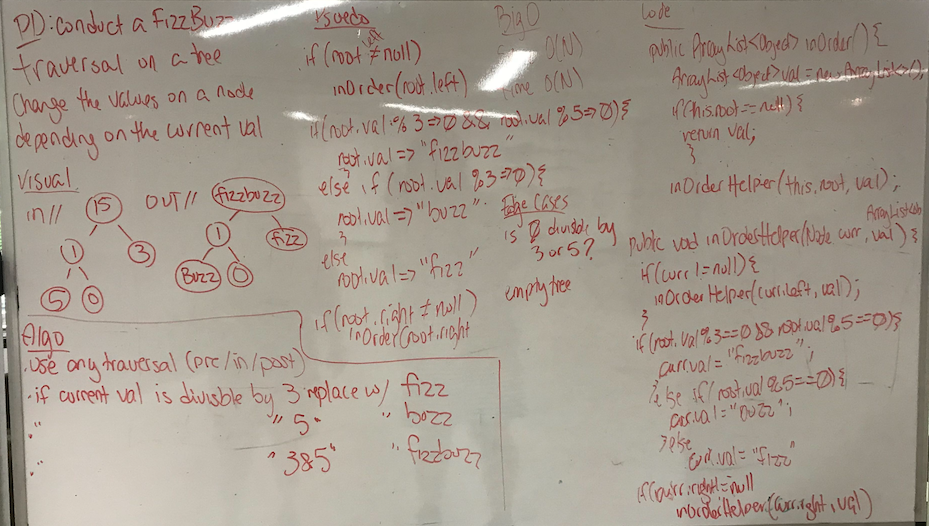 PD: conduct a FizzBuzz
traversal on a tree
Change the values on a node
depending on the current val
Visual
IN//
15
1
3
5
0
OUT//
fizzbuzz
1
fizz
Buzz
0
Algo
. use any traversal (pre/in/post)
. if current val is divisble by 3 replace w/ fizz
." "5" " buzz
." "3&5" " fizzbuzz
Psuedo
if (root ≠ null)
inOrder(root.left)
if(root.val % 3 => 0 && root.val % 5 => 0){
root.val => "fizzbuzz"
}
else if (root.val %3 => 0){
root.val => "buzz"
}
else
root.val => "fizz"
if (root.right ≠ null)
inOrder(root.right
Big O
O(N)
time O(N)
Edge Cases
is 0 divisible by
3 or 5?
empty tree
Code
public ArrayList<Object> inOrder() {
ArrayList<Object> val = new ArrayList<>();
if(this.root == null) {
return val;
}
inOrderHelpier(this.root, val);
ArrayList<ob
public void inOrderHelper(Node curr, val) {
if(curr != null){
inOrderHelper(curr.left, val);
}
if(root.val%3==0 && root.val%5==0){
curr.val = "fizzbuzz";
} else if(root.val%5==0){
curr.val = "buzz";
} else
curr.val = "fizz"
if(curr.right != null
inOrderHelper(curr.right, val)